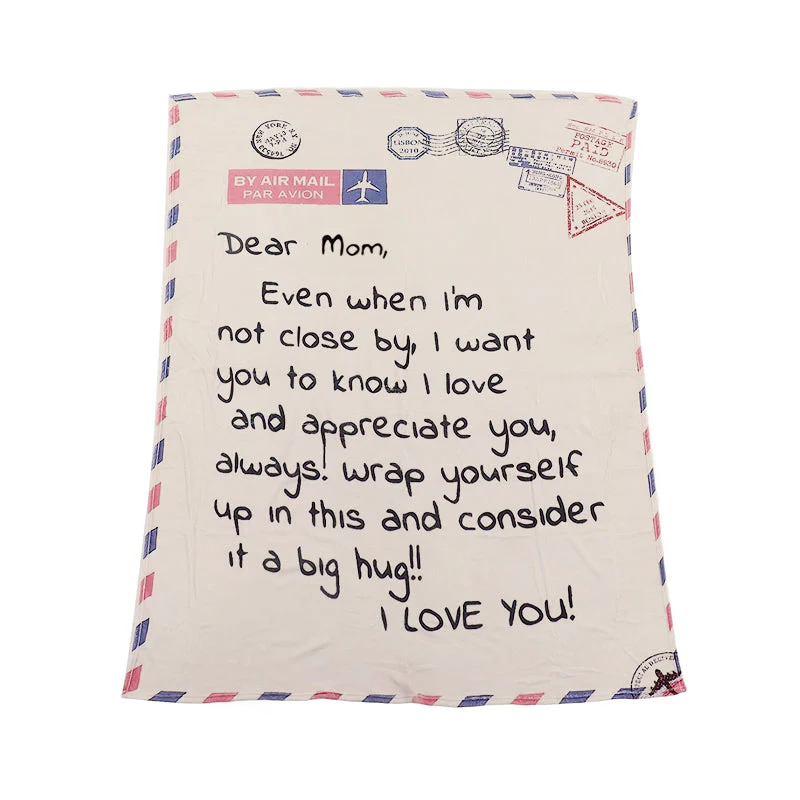 LISBON
2010
POSTAGE
PAID
Permit No.
BY AIR MAIL
PAR AVION
Dear Mom,
Even when I'm
not close by, I want
you to know I love
and appreciate you,
always! Wrap yourself
up in this and consider
it a big hug!!
I LOVE YOU!